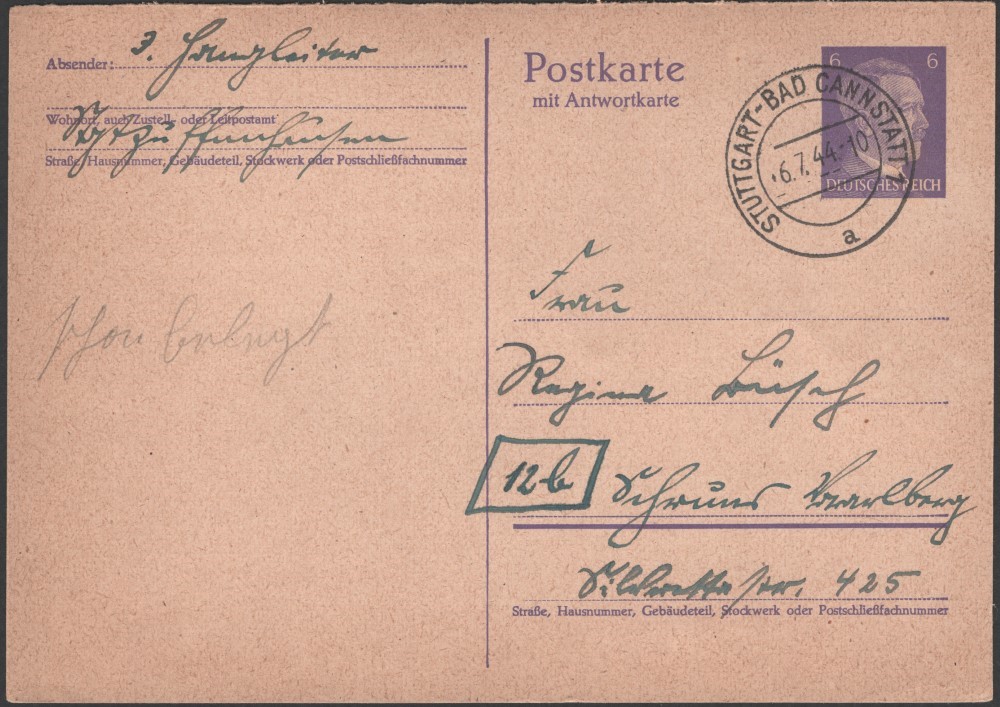 Absender: J. Hangleiter
Wohnort, auch Zustell- oder Leitpostamt
Stgt Zuffenhausen
Straße, Hausnummer, Gebäudeteil, Stockwerk oder Postschließfachnummer
schon belegt
Postkarte
mit Antwortkarte
6 6
DEUTSCHES REICH
STUTTGART-BAD CANNSTATT 1
6.7.44.-10
a
Frau
Regina
12b Schruns Vorarlberg
425
Straße, Hausnummer, Gebäudeteil, Stockwerk oder Postschließfachnummer